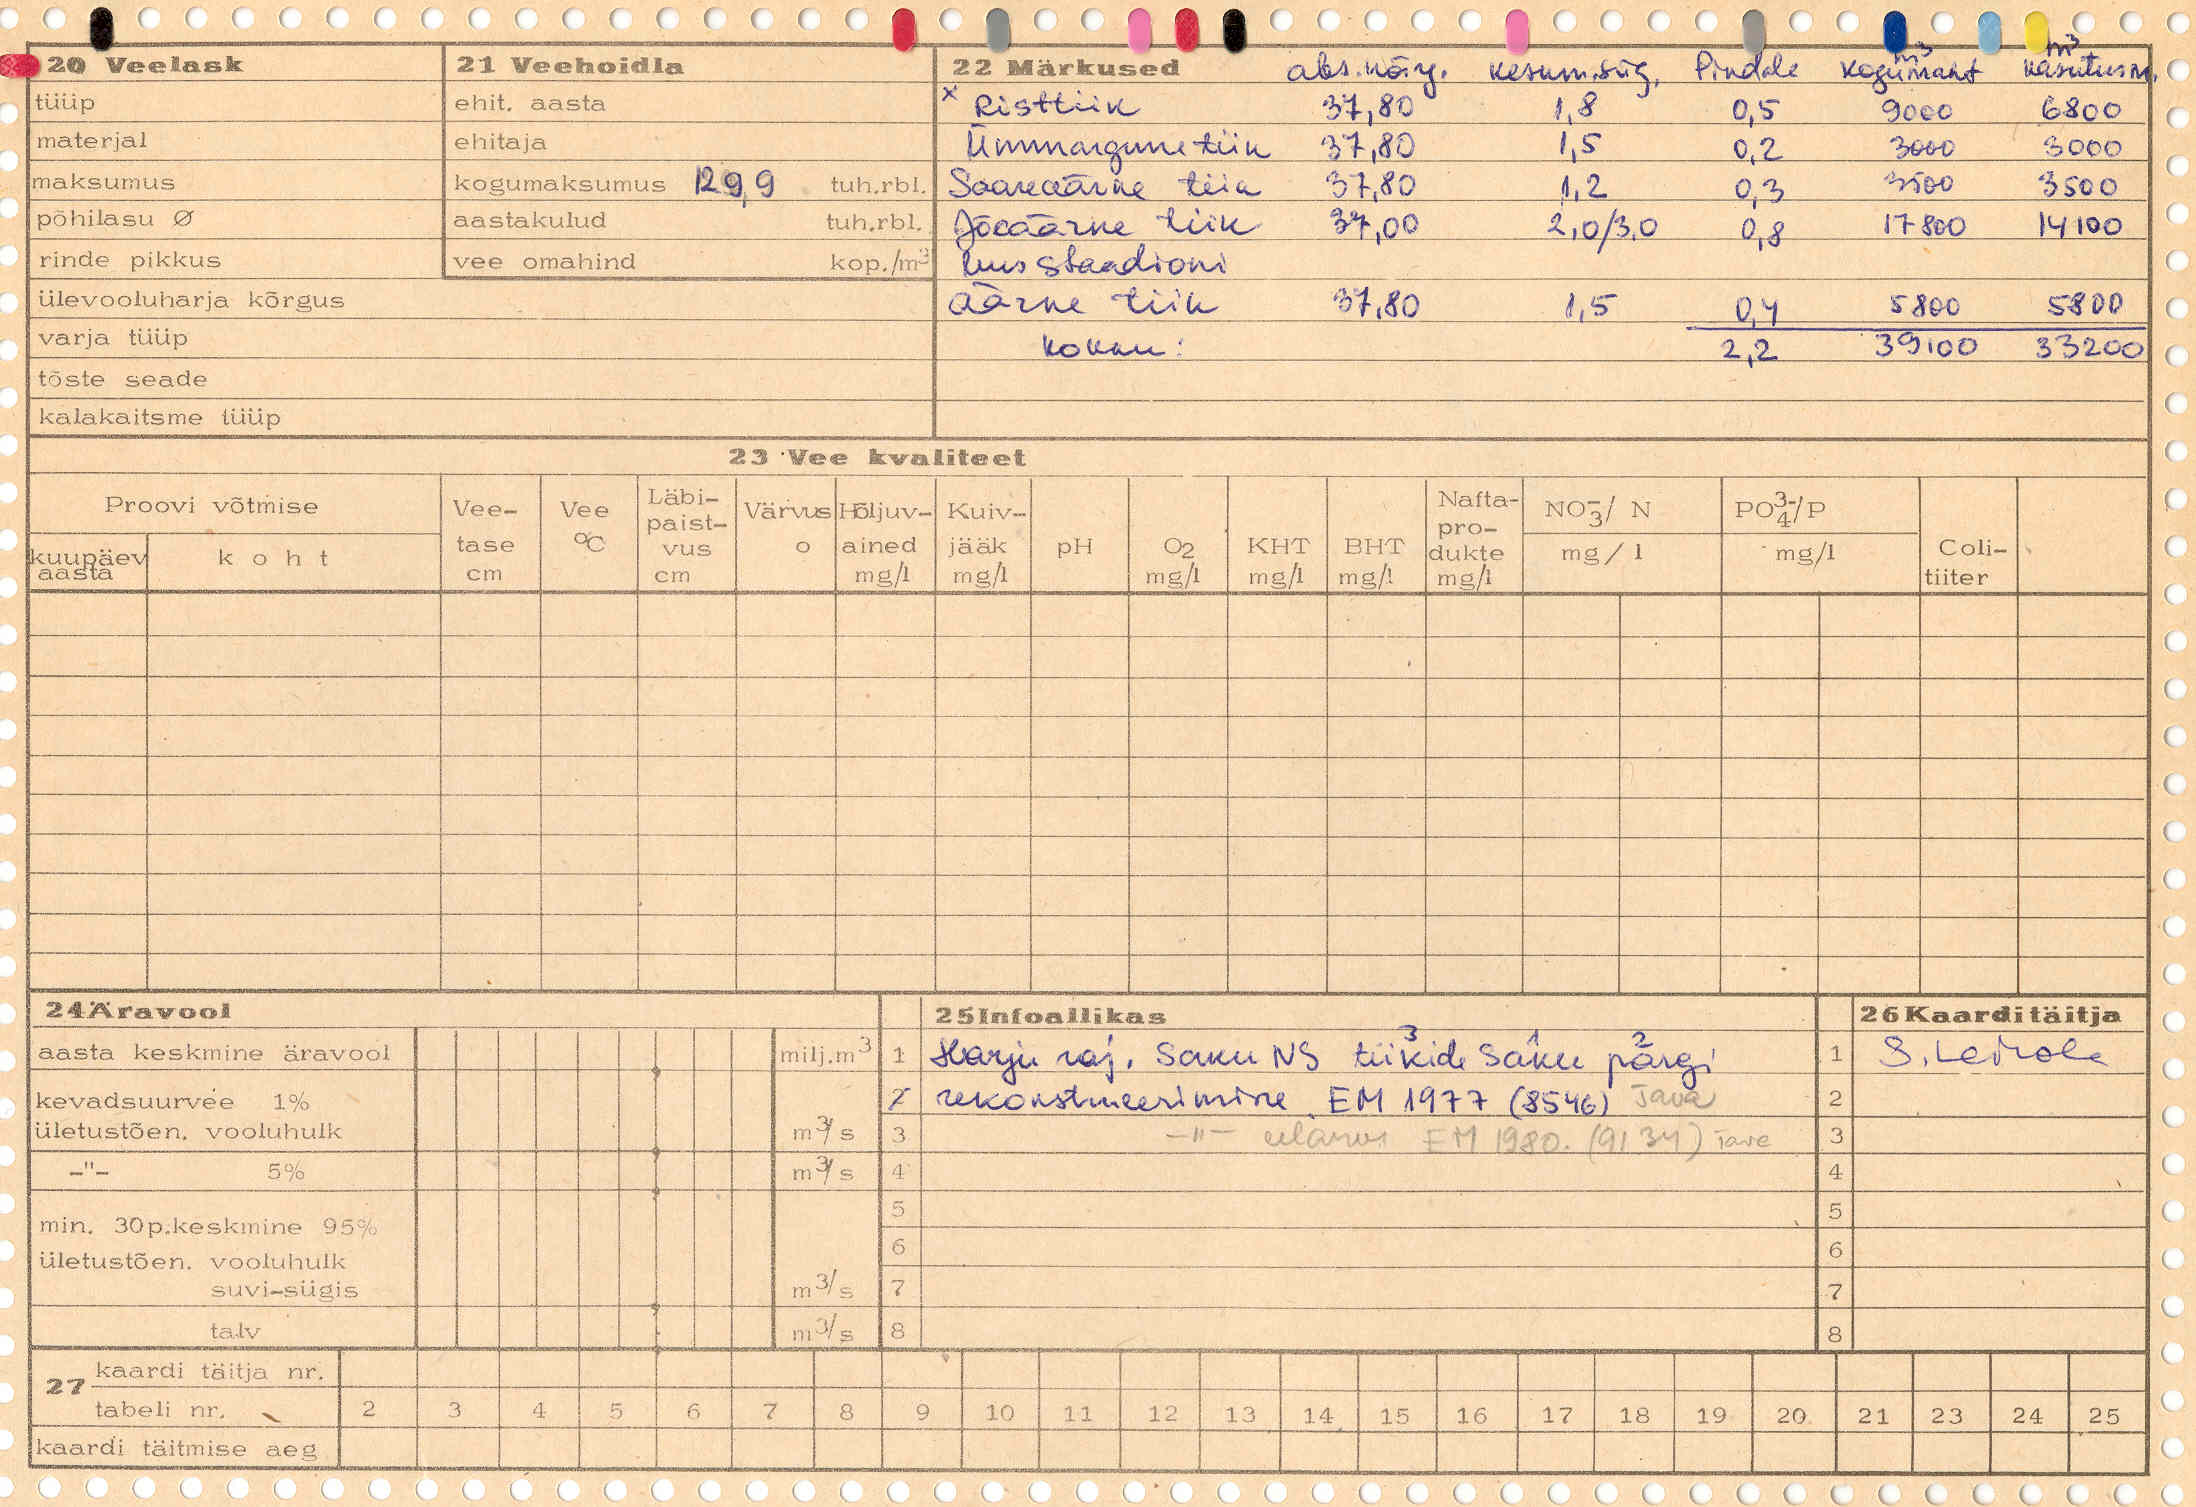 20 Veelask
tüüp
materjal
maksumus
põhilasu Ø
rinde pikkus
ülevooluharja kõrgus
varja tüüp
tõste seade
kalakaitsme tüüp
21 Veehoidla
ehit. aasta
ehitaja
kogumaksumus 129,9 tuh.rbl.
aastakulud tuh.rbl.
vee omahind kop./m³
22 Märkused abs.kõrg. keskm.süg. Pindala kogumaht m³ kasutusm. m³
x Risttiik 37,80 1,8 0,5 9000 6800
Ümmargune tiik 37,80 1,5 0,2 3000 3000
Saareäärne tiik 37,80 1,2 0,3 3500 3500
Jõeäärne tiik 37,00 2,0/3,0 0,8 17800 14100
uus staadioni
äärne tiik 37,80 1,5 0,4 5800 5800
Kokku: 2,2 39100 33200
23 Vee kvaliteet
Proovi võtmise
kuupäev aasta
koht
Vee-tase cm
Vee °C
Läbi-paist-vus cm
Värvus o
Hõljuv-ained mg/l
Kuiv-jääk mg/l
pH
O2 mg/l
KHT mg/l
BHT mg/l
Nafta-pro-dukte mg/l
NO₃⁻/ N mg/l
PO₄³⁻/P mg/l
Coli-tiiter
24 Äravool
aasta keskmine äravool milj.m³
kevadsuurvee 1%
ületustõen. vooluhulk m³/s
-"- 5% m³/s
min. 30p.keskmine 95%
ületustõen. vooluhulk
suvi-sügis m³/s
talv m³/s
25 Infoallikas
1 Harju raj. Saku NS tiikide³ Saku¹ pargi²
2 rekonstrueerimine. EM 1977 (8546)
3 -"- eelarve EM 1980. (9134)
4
5
6
7
8
26 Kaarditäitja
1
2
3
4
5
6
7
8
27 kaardi täitja nr.
tabeli nr. 2 3 4 5 6 7 8 9 10 11 12 13 14 15 16 17 18 19 20 21 23 24 25
kaardi täitmise aeg